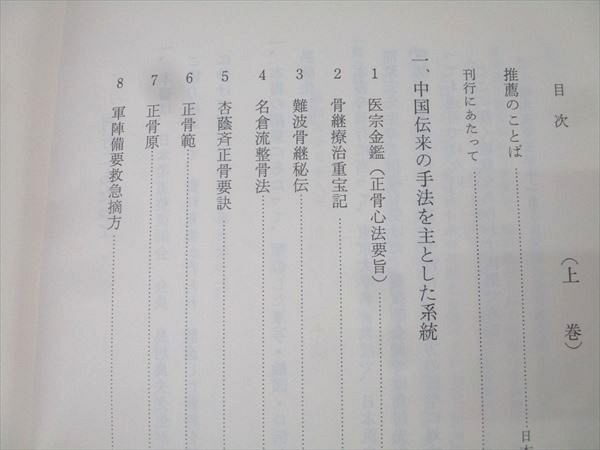 目次
(上巻)
推薦のことば……………………日本
刊行にあたって……………………
一、中国伝来の手法を主とした系統
1 医宗金鑑(正骨心法要旨)……………………
2 骨継療治重宝記……………………
3 難波骨継秘伝……………………
4 名倉流整骨法……………………
5 杏蔭斉正骨要訣……………………
6 正骨範……………………
7 正骨原……………………
8 軍陣備要救急摘方……………………